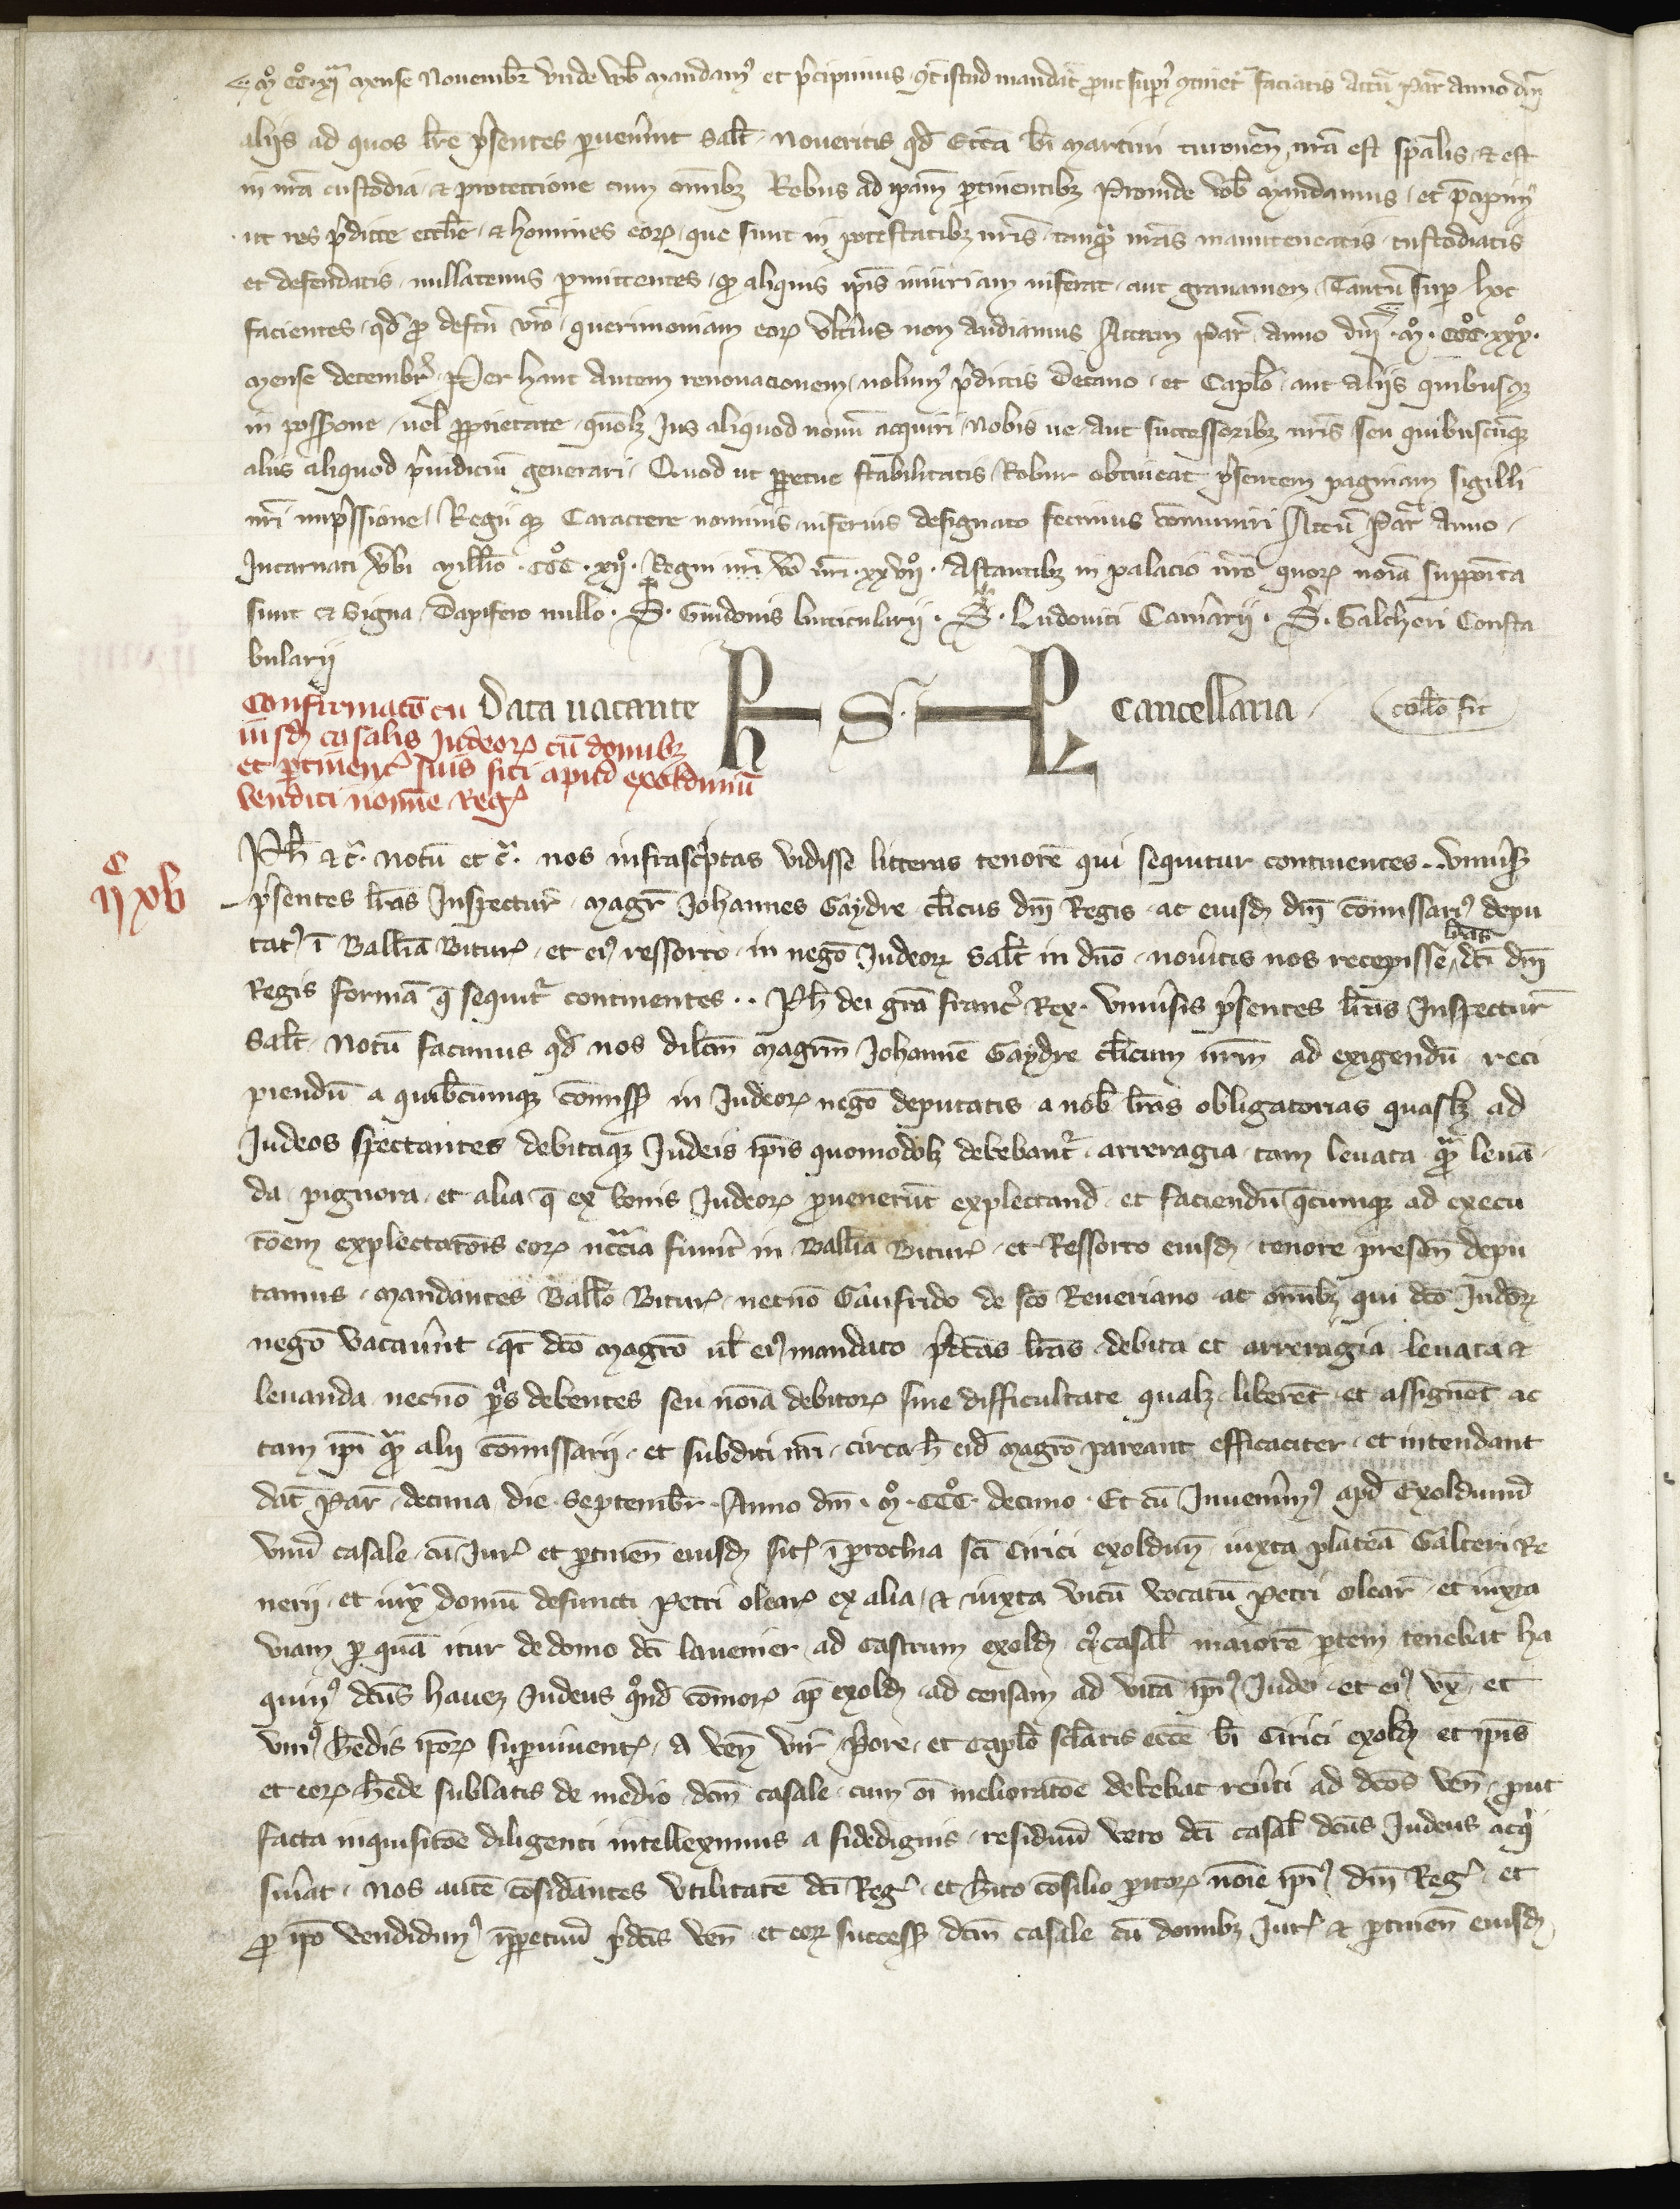 mº ccº xiª mense Novembr̃ vnde vob̃ mandamꝰ et p̃cipimus qt̃ istud mandat̃ prout supr̃ 9tinet̃ faciatis Actũ Par̃ Anno dñi
aliis ad quos lr̃e p̃sentes pervenerint salt̃. Noveritis qd̃ Ecc̃a bt̃i martini turoneñ nr̃a est sp̃alis, & est
in nr̃a custodia & protectione cum om̃ibꝫ Rebus ad ipam̃ pertinentibꝫ Proinde vob̃ mandamus, et p̃cipimꝰ
ut res p̃dicte eccl̃ie, & homines eorꝝ, que sunt in potestatibꝫ nr̃is, tanq̃ nr̃as manuteneatis, custodiatis
et defendatis, nullatenus permittentes, qd̃ aliquis ip̃is iniuriam inferat, aut gravamen, Tantũ sup̃ hoc
facientes, qd̃ pro defc̃u vr̃o, querimoniam eorꝝ vlterius non audiamus Actum Par̃ anno dñi mº cccº xxxº
mense decembr̃. Per hanc autem renovacionem, nolumꝰ p̃dictis Decano, et Capl̃o, aut aliis quibusqꝫ
in poss̃ione, vel proprietate, quolꝫ Ius aliquod novũ acquiri, Nobis ve, aut successoribꝫ nr̃is seu quibuscũqꝫ
aliis aliquod p̃iudiciũ generari. Quod ut perpetue stabilitatis Robur obtineat p̃sentem paginam sigilli
nr̃i imp̃ssione, Regii qꝫ Caractere nominis inferius designato fecimus cõmuniri Actũ Par̃ Anno
Incarnati v̾bi mill̃io cccº xiiº Regni nr̃i v̾o nr̃i xxviiº. Astantibꝫ in palacio nr̃o quorꝝ noĩa supposita
sunt & signa, Dapifero nullo. S. Guidonis buticularii. S. Ludovici Camerarii. S. Galcheri Consta
bularii
Data vacante Ph S. Pl Cancellaria Coll̃o fit
Confirmatõ cu
iusdꝫ casalis Iudeorꝝ cũ domibꝫ
et pertinenc̃ suis siti apud exoldunũ
venditi nomine Reg̃
ijᶜ xv
Ph̃ &c̃. Notũ et c̃. nos infrascriptas vidisse litteras tenorẽ qui sequitur continentes. Vniv̾s̃
p̃sentes lr̃as Inspectur̃, magr̃ Johannes Gaydre cl̃icus dñi Regis ac eiusdꝫ dñi cõmissariꝰ depu
tatꝰ ĩ Ball̃ia Biturꝝ, et eiꝰ ressorto, in nego Iudeorꝝ salt̃ in dño, noveritis nos recepisse lr̃as dc̃i dñi
Regis formã q̃ sequit̃ continentes.. Ph̃ dei gr̃a franc̃ Rex. Vniv̾sis p̃sentes lr̃as Inspectur̃
Salt̃. Notũ facimus qd̃ nos dilc̃m magr̃m Johannẽ Gaydre cl̃icum nr̃m ad exigendũ reci
piendũ a quib̃cumqꝫ cõmiss̃ in Iudeorꝝ nego deputatis a nob̃ lr̃as obligatorias quaslꝫ ad
Iudeos spectantes debitaqꝫ Iudeis ip̃is quomodolꝫ debebant̃, arreragia tam levata q̃ levã
da, pignora, et alia q̃ ex bonis Iudeorꝝ provenerũt explectand̃, et faciendũ q̃cumqꝫ ad execu
tõem explectatõis eorꝝ necc̃ia fuerit in Ball̃ia Biturꝝ, et Ressorto eiusdꝫ tenore presenc̃ depu
tamus, mandantes Ball̃o Biturꝝ, necnõ Gaufrido de sc̃o Reveriano ac om̃ibꝫ qui dc̃o Iudeorꝝ
nego vacaverint, qt̃ dc̃o magr̃o vl̃ eiꝰ mandato p̃dc̃as lr̃as debita et arreragia levata &
levanda necnõ p̃s debentes seu noĩa debitorꝝ sine difficultate qualꝫ liberẽt et assignẽt ac
tam ip̃i q̃ alii cõmissarii, et subditi nr̃i, circa h̃ eid̃ magr̃o pareant efficaciter, et intendant
dat̃ Par̃, decima die septembr̃. Anno dñi mº cccº decimo. Et cũ Invenerimꝰ apd̃ Exoldunũ
vnũ casale, cũ Iurꝰ et pertineñ eiusdꝫ sitꝰ ĩ parrochia sc̃i Cirici exolduñ iuxta plateã Galteri Re
nerii, et iuxª domũ defuncti Petri olearꝝ ex alia, & iuxta vicũ vocatũ Petri olear̃, et iuxta
viam per quã itur de domo dc̃i lavenier ad castrum exoldꝫ cꝰ casal̃ maiorẽ partem tenebat ha
quinꝰ dc̃us havez Iudeus qnd̃ cõmorꝝ ap̃ exoldꝫ, ad censam ad vitã ip̃iꝰ Iudei, et eiꝰ vx̃, et
vniꝰ h̾edis ipõrꝝ superviventꝰ, a veñ vir̃ p̃iore, et capl̃o scl̃aris ecc̃e bt̃i Cirici exoldꝫ et ip̃is
et eorꝝ h̾ede sublatis de medio dc̃m casale, cum oĩ melioratõe debebat rev̾ti ad dc̃os veñ, prout
facta inquisitõe diligenti intelleximus a fidedignis, residuũ vero dc̃i casal̃ dc̃us Iudeus acqi
siv̾at. Nos autẽ cõsid̾antes vtilitatẽ dc̃i Reg̃, et h̾ito cõsilio peritorꝝ noĩe ip̃iꝰ dñi Reg̃ et
pro ip̃o vendidimꝰ ĩperpetuũ p̃dc̃is veñ et eorꝝ success̃ dc̃m casale cũ domibꝫ Iurꝰ & pertineñ eiusdꝫ